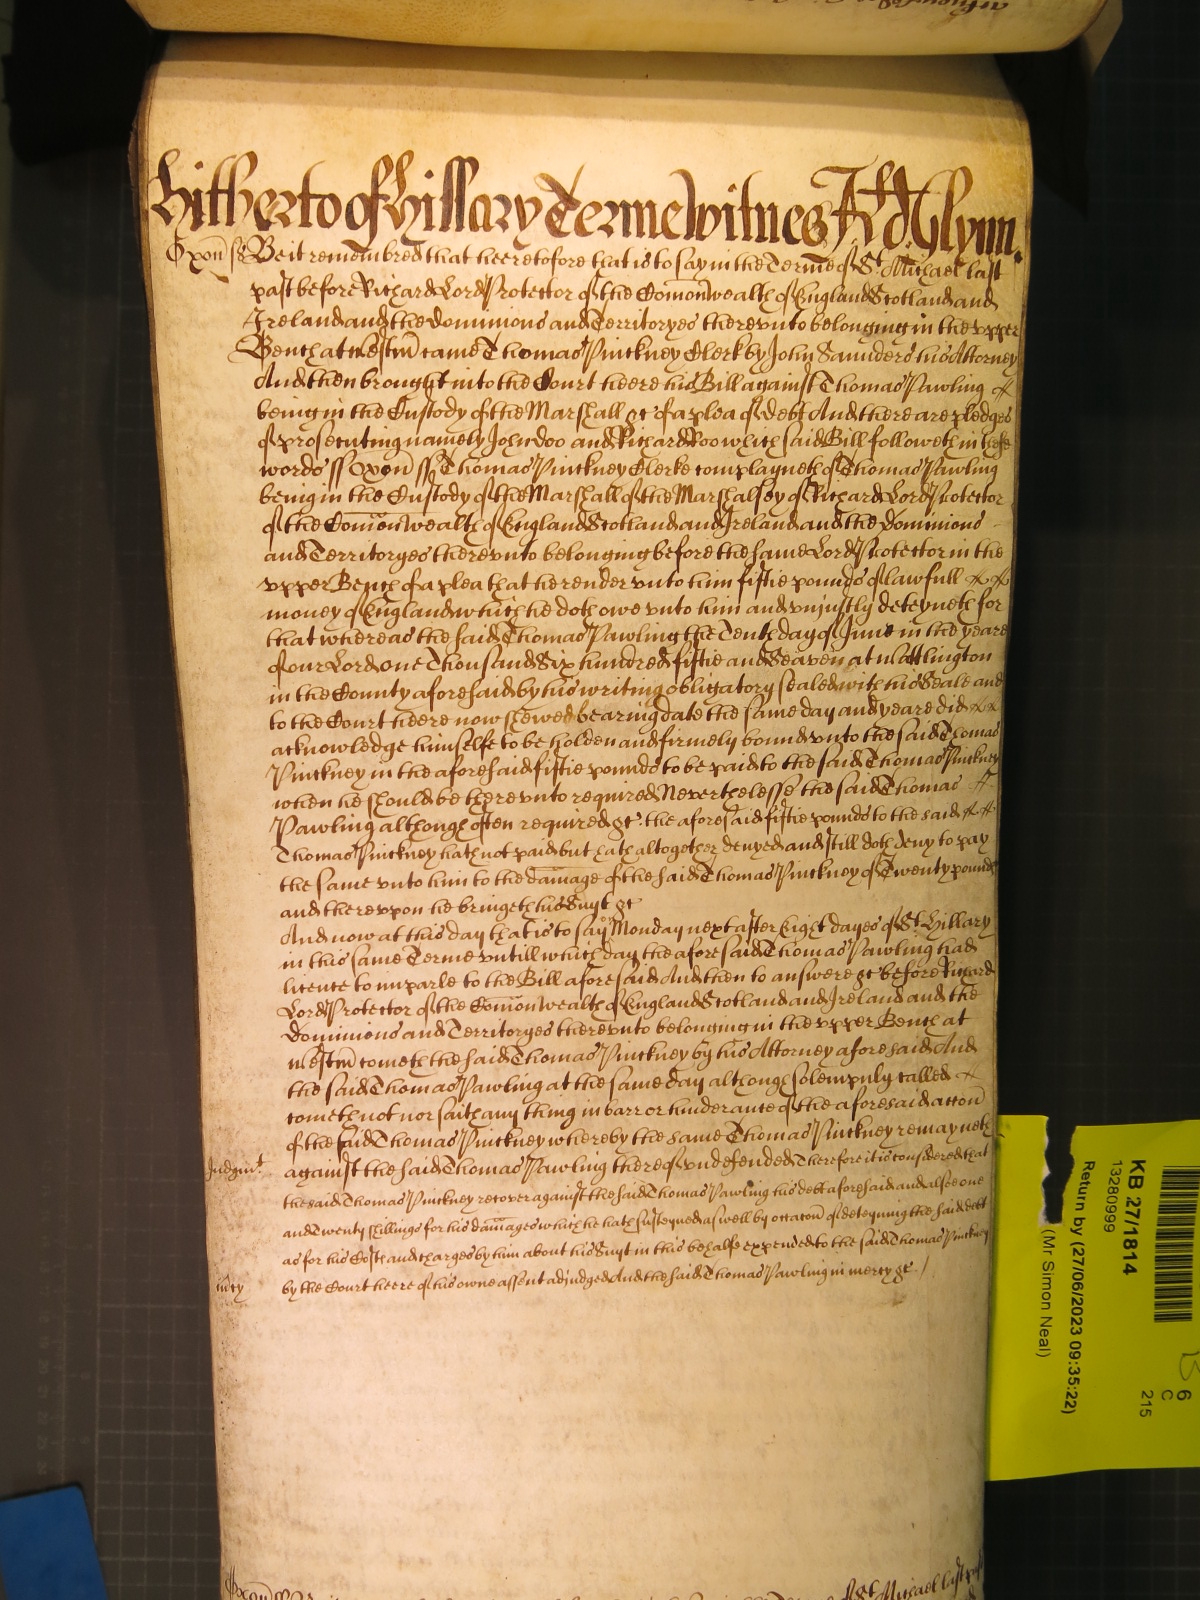 Hitherto of Hillary Terme Witnes Glynn.
Oxon ss Be it remembred that heeretofore that is to say in the Terme of St. Michael last
past before Richard Lord Protector of the Comonwealth of England Scotland and
Ireland and the Dominions and Territoryes therevnto belonging in the vpper
Bench at Westm came Thomas Pinckney Clerk by John Saunders his Attorney
And then brought into the Court heere his Bill against Thomas Pawling
being in the Custody of the Marshall &c of a plea of debt And there are pledges
of prosecuting namely John Doo and Richard Roo which said Bill followeth in these
words ss Oxon ss Thomas Pinckney Clerke complayneth of Thomas Pawling
being in the Custody of the Marshall of the Marshalsey of Richard Lord Protector
of the Comonwealth of England Scotland and Ireland and the Dominions
and Territoryes therevnto belonging before the same Lord Protector in the
vpper Bench of a plea that he render vnto him fiftie pounds of lawfull
money of England which he doth owe vnto him and vnjustly deteyneth for
that whereas the said Thomas Pawling the Tenth day of June in the yeare
of our Lord one Thousand Six hundred fiftie and Seaven at Watlington
in the County aforesaid by his writing obligatory sealed with his Seale and
to the Court heere now shewed bearing date the same day and yeare did
acknowledge himselfe to be holden and firmely bound vnto the said Thomas
Pinckney in the aforesaid fiftie pounds to be paid to the said Thomas Pinckney
when he should be therevnto required Neverthelesse the said Thomas
Pawling although often required &c. the aforesaid fiftie pounds to the said
Thomas Pinckney hath not paid but hath altogether denyed and still doth deny to pay
the same vnto him to the damage of the said Thomas Pinckney of Twenty pounds
and therevpon he bringeth his Suyt &c
And now at this day that is to say Monday next after Eight dayes of St. Hillary
in this same Terme vntill which day the aforesaid Thomas Pawling had
licence to imparle to the Bill aforesaid And then to answere &c before Richard
Lord Protector of the Comonwealth of England Scotland and Ireland and the
Dominions and Territoryes therevnto belonging in the vpper Bench at
Westm cometh the said Thomas Pinckney by his Attorney aforesaid And
the said Thomas Pawling at the same day although solempnly called
cometh not nor saith any thing in barr or hinderance of the aforesaid accon
of the said Thomas Pinckney whereby the same Thomas Pinckney remayneth
Judgmt. against the said Thomas Pawling thereof vndefended Therefore it is considered that
the said Thomas Pinckney recover against the said Thomas Pawling his debt aforesaid and alsoe one
and Twenty shillings for his damages which he hath susteyned aswell by occacon of deteyning the said debt
as for his Costs and charges by him about his Suyt in this behalfe expended to the said Thomas Pinckney
mcy by the Court heere of his owne assent adjudged And the said Thomas Pawling in mercy &c. /
St. Michael last past
KB 27/1814
13280999
Return by (27/06/2023 09:35:22)
(Mr Simon Neal)
6
C
215